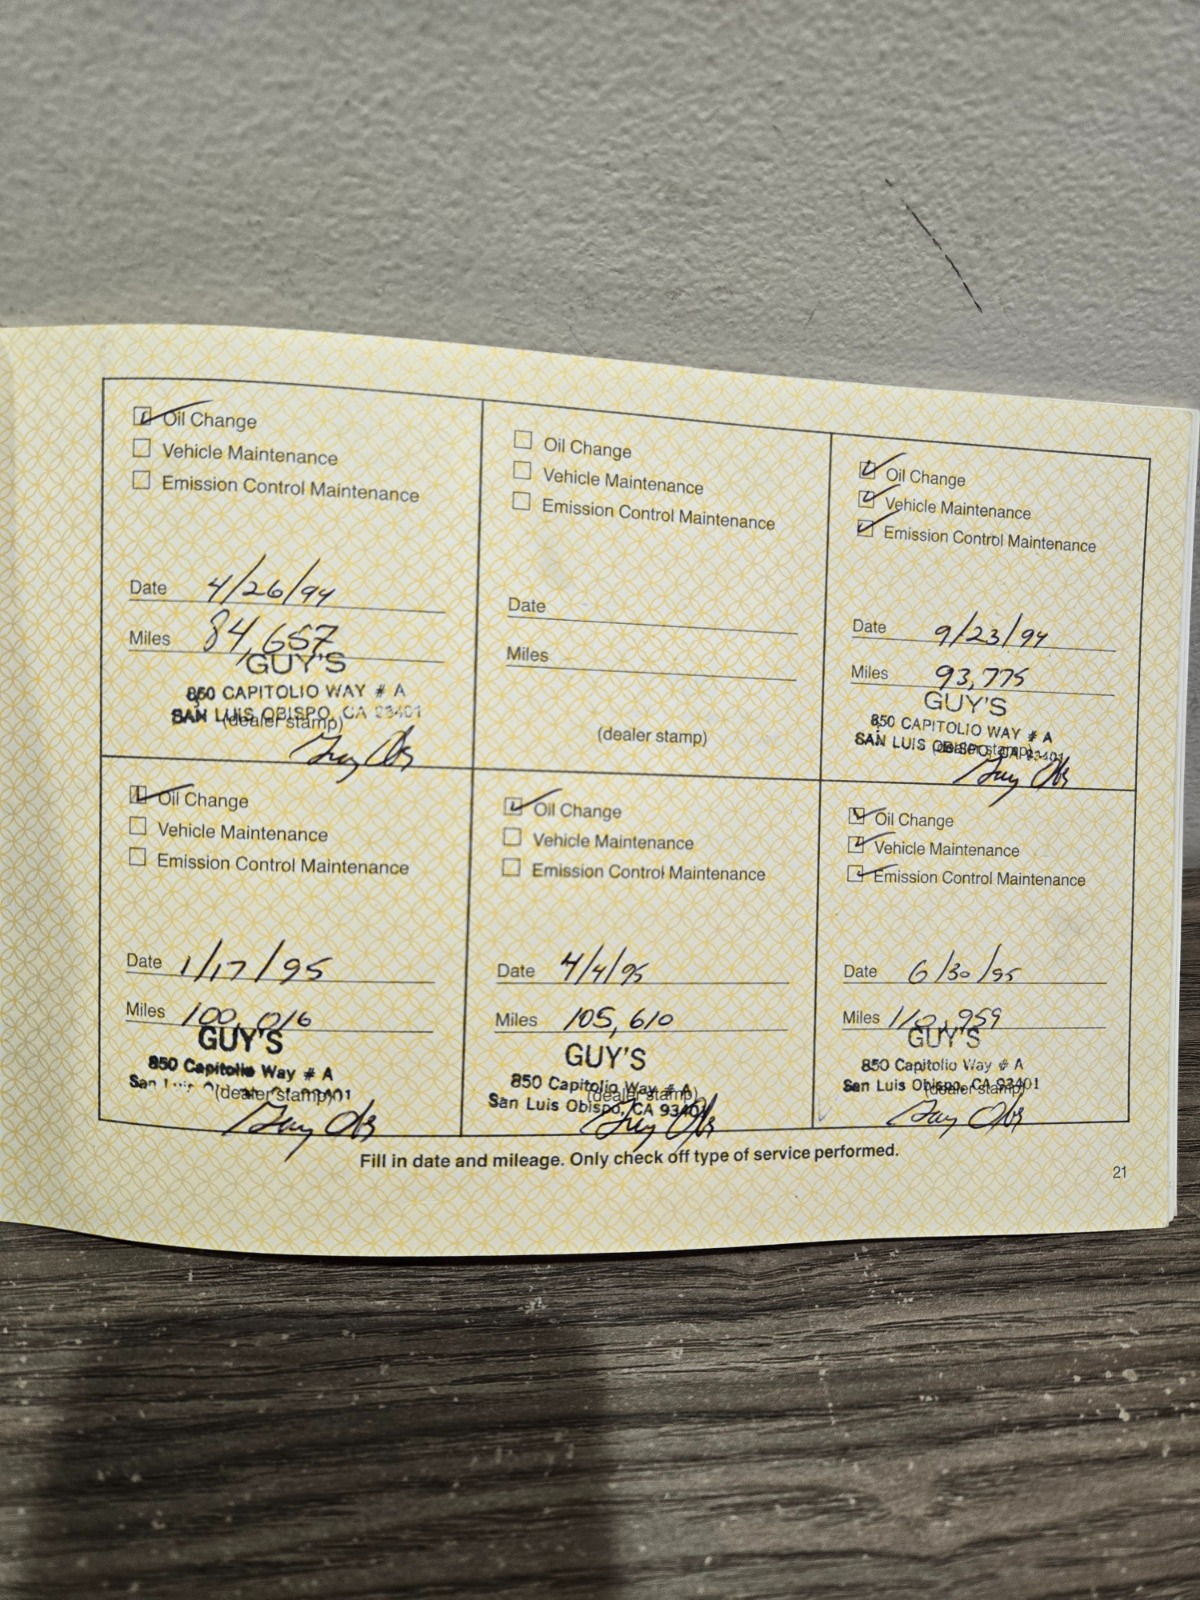 Oil Change
Vehicle Maintenance
Emission Control Maintenance
Date 4/26/94
Miles 84,657
GUY'S
850 CAPITOLIO WAY # A
SAN LUIS OBISPO, CA 93401
(dealer stamp)
Oil Change
Vehicle Maintenance
Emission Control Maintenance
Date
Miles
(dealer stamp)
Oil Change
Vehicle Maintenance
Emission Control Maintenance
Date 9/23/94
Miles 93,775
GUY'S
850 CAPITOLIO WAY # A
SAN LUIS OBISPO, CA 93401
(dealer stamp)
Oil Change
Vehicle Maintenance
Emission Control Maintenance
Date 1/17/95
Miles 100,016
GUY'S
850 Capitolio Way # A
San Luis Obispo, CA 93401
(dealer stamp)
Oil Change
Vehicle Maintenance
Emission Control Maintenance
Date 4/4/95
Miles 105,610
GUY'S
850 Capitolio Way # A
San Luis Obispo, CA 93401
(dealer stamp)
Oil Change
Vehicle Maintenance
Emission Control Maintenance
Date 6/30/95
Miles 110,959
GUY'S
850 Capitolio Way # A
San Luis Obispo, CA 93401
(dealer stamp)
Fill in date and mileage. Only check off type of service performed.
21